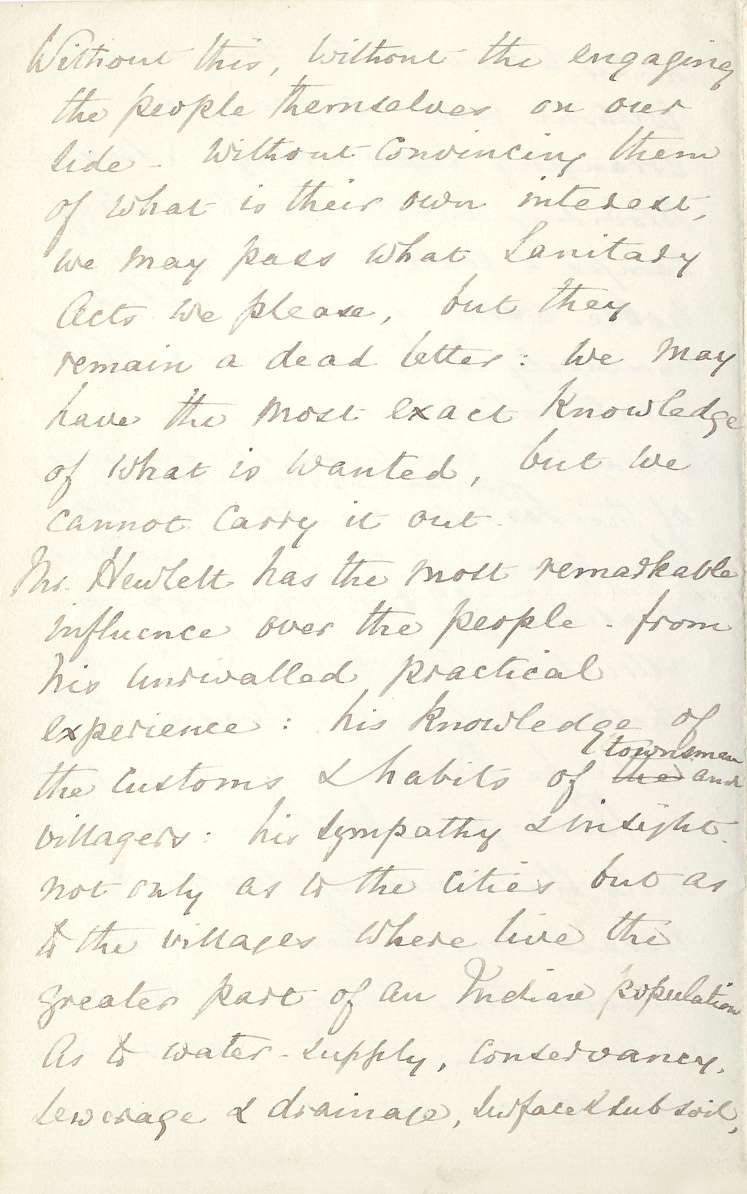 Without this, without the engaging
the people themselves on our
side - without convincing them
of what is their own interest,
we may pass what Sanitary
Acts we please, but they
remain a dead letter: we may
have the most exact knowledge
of what is wanted, but we
cannot carry it out.
Mr. Hewlett has the most remarkable
influence over the people - from
his unrivalled practical
experience: his knowledge of
the customs & habits of the townsmen and
villagers: his sympathy & insight.
not only as to the cities but as
to the villages where live the
greater part of an Indian population
As to water-supply, conservancy,
sewerage & drainage, surface & subsoil,